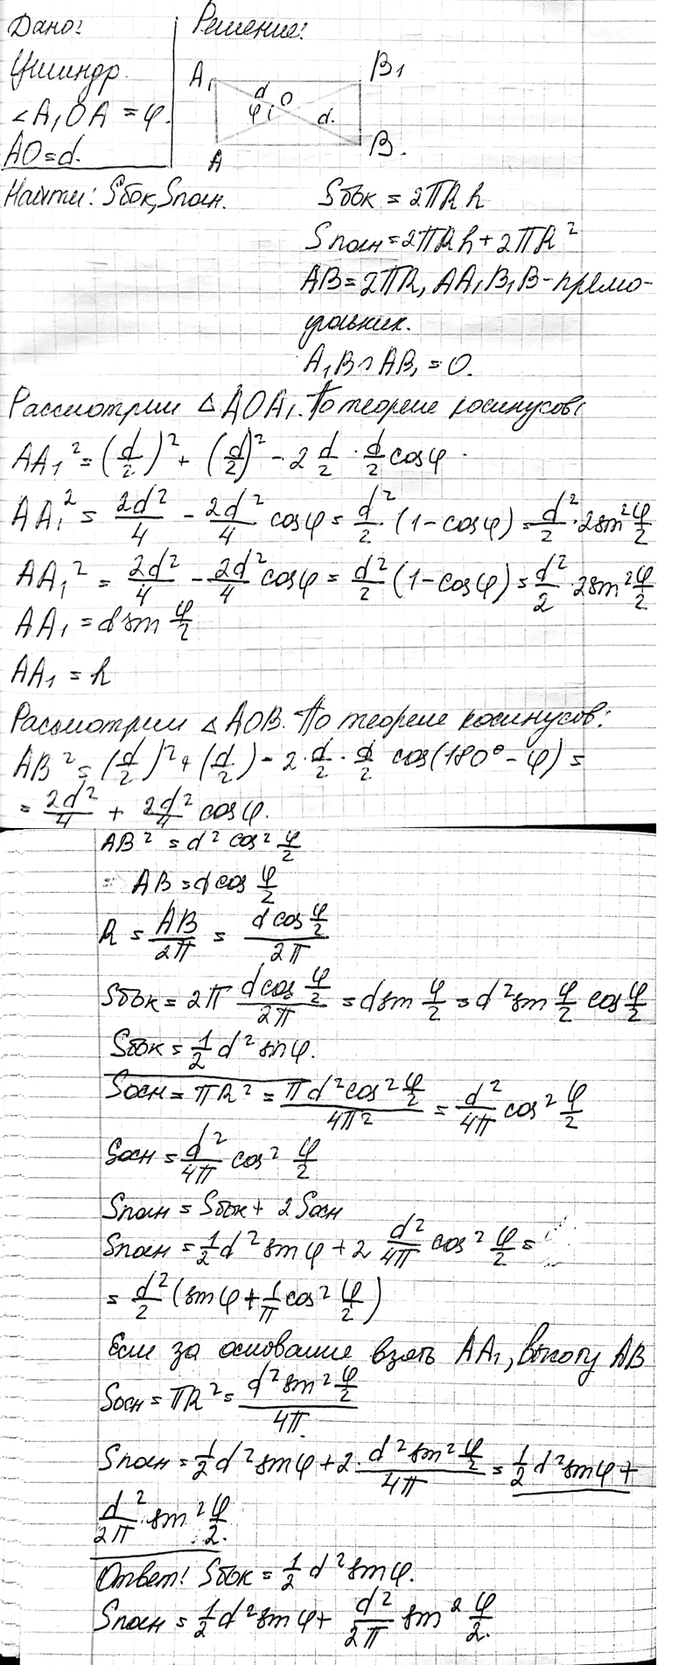 Дано:
Решение:
Цилиндр.
∠A₁OA = φ.
AO = d.
A₁ B₁
d O
φ d.
A B.
Найти: Sбок, Sполн.
Sбок = 2πRh
Sполн = 2πRh + 2πR²
AB = 2πR, AA₁B₁B - прямо-
угольник.
A₁B ∩ AB₁ = O.
Рассмотрим △AOA₁. По теореме косинусов:
AA₁² = (d/2)² + (d/2)² - 2 d/2 · d/2 cosφ.
AA₁² = 2d²/4 - 2d²/4 cosφ = d²/2 · (1 - cosφ) = d²/2 · 2sin² φ/2
AA₁² = 2d²/4 - 2d²/4 cosφ = d²/2 (1 - cosφ) = d²/2 · 2sin² φ/2
AA₁ = d sin φ/2
AA₁ = h
Рассмотрим △AOB. По теореме косинусов:
AB² = (d/2)² + (d/2) - 2 · d/2 · d/2 cos(180° - φ) =
= 2d²/4 + 2d²/4 cosφ.
AB² = d² cos² φ/2
AB = d cos φ/2
R = AB/2π = d cos φ/2 / 2π
Sбок = 2π d cos φ/2 / 2π = d sin φ/2 = d² sin φ/2 cos φ/2
Sбок = 1/2 d² sinφ.
Sосн = πR² = π d² cos² φ/2 / 4π² = d²/4π cos² φ/2
Sосн = d²/4π cos² φ/2
Sполн = Sбок + 2Sосн
Sполн = 1/2 d² sinφ + 2 d²/4π cos² φ/2 =
= d²/2 (sinφ + 1/π cos² φ/2)
Если за основание взять AA₁, высоту AB
Sосн = πR² = d² sin² φ/2 / 4π.
Sполн = 1/2 d² sinφ + 2 · d² sin² φ/2 / 4π = 1/2 d² sinφ +
d²/2π · sin² φ/2.
Ответ: Sбок = 1/2 d² sinφ.
Sполн = 1/2 d² sinφ + d²/2π sin² φ/2.